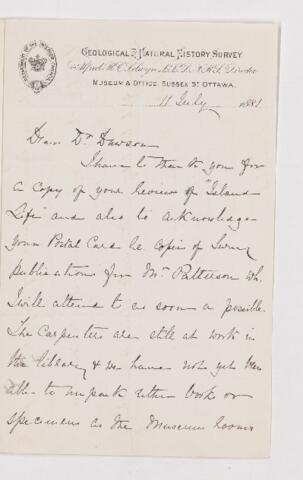 GEOLOGICAL & NATURAL HISTORY SURVEY
Alfred R. C. Selwyn L.L.D. F.R.S. Director
MUSEUM & OFFICE SUSSEX ST OTTAWA.
11 July 1881
Dear Dr. Dawson
I have to thank you for
a copy of your Review of "Island
Life" and also to acknowledge
your Postal Card re copies of Survey
publications for Mr. Patterson wh.
I will attend to as soon as possible.
The Carpenters are still at work in
the library & we have not yet been
able to unpack either books or
specimens as the Museum rooms